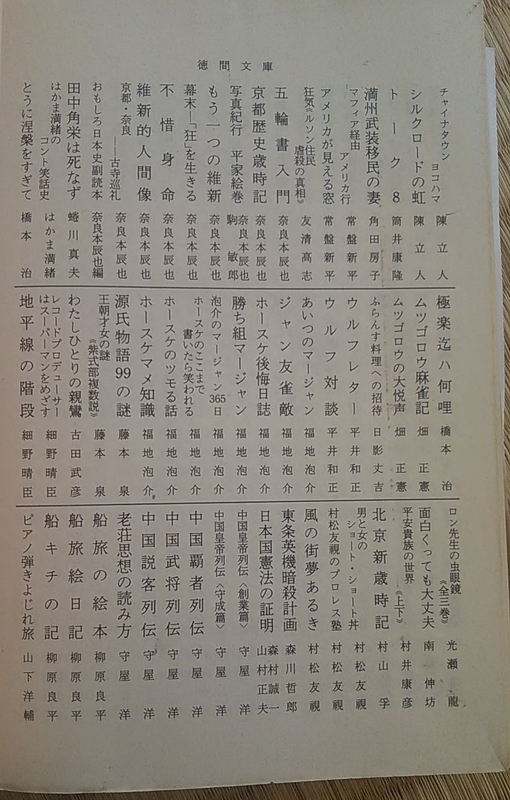 徳間文庫
チャイナタウン ヨコハマ 陳立人
シルクロードの虹 陳立人
トーク8 筒井康隆
満州武装移民の妻 角田房子
マフィア経由 アメリカ行 常盤新平
アメリカが見える窓 常盤新平
狂気《ルソン住民虐殺の真相》 友清高志
五輪書入門 奈良本辰也
京都歴史歳時記 奈良本辰也
写真紀行 平家絵巻 奈良本辰也 駒敏郎
もう一つの維新 奈良本辰也
幕末―「狂」を生きる 奈良本辰也
不惜身命 奈良本辰也
維新的人間像 奈良本辰也
京都・奈良――古寺巡礼 奈良本辰也
おもしろ日本史副読本 奈良本辰也編
田中角栄は死なず 蜷川真夫
はかま満緒のコント笑話史 はかま満緒
とうに涅槃をすぎて 橋本治
極楽迄ハ何哩 橋本治
ムツゴロウ麻雀記 畑正憲
ムツゴロウの大悦声 畑正憲
ふらんす料理への招待 日影丈吉
ウルフレター 平井和正
ウルフ対談 平井和正
あいつのマージャン 福地泡介
ジャン友雀敵 福地泡介
ホースケ後悔日誌 福地泡介
勝ち組マージャン 福地泡介
泡介のマージャン365日 福地泡介
ホースケのここまで書いたら笑われる 福地泡介
ホースケのツモる話 福地泡介
ホースケマメ知識 福地泡介
源氏物語99の謎 藤本泉
王朝才女の謎《紫式部複数説》 藤本泉
わたしひとりの親鸞 古田武彦
レコードプロデューサーはスーパーマンをめざす 細野晴臣
地平線の階段 細野晴臣
ロン先生の虫眼鏡《全三巻》 光瀬龍
面白くっても大丈夫 南伸坊
平安貴族の世界《上下》 村井康彦
北京新歳時記 村山孚
男と女のショート・ショート丼 村松友視
村松友視のプロレス塾 村松友視
風の街夢あるき 村松友視
東条英機暗殺計画 森川哲郎
日本国憲法の証明 森村誠一 山村正夫
中国皇帝列伝〈創業篇〉 守屋洋
中国皇帝列伝〈守成篇〉 守屋洋
中国覇者列伝 守屋洋
中国武将列伝 守屋洋
中国説客列伝 守屋洋
老荘思想の読み方 守屋洋
船旅の絵本 柳原良平
船旅絵日記 柳原良平
船キチの記 柳原良平
ピアノ弾きよじれ旅 山下洋輔